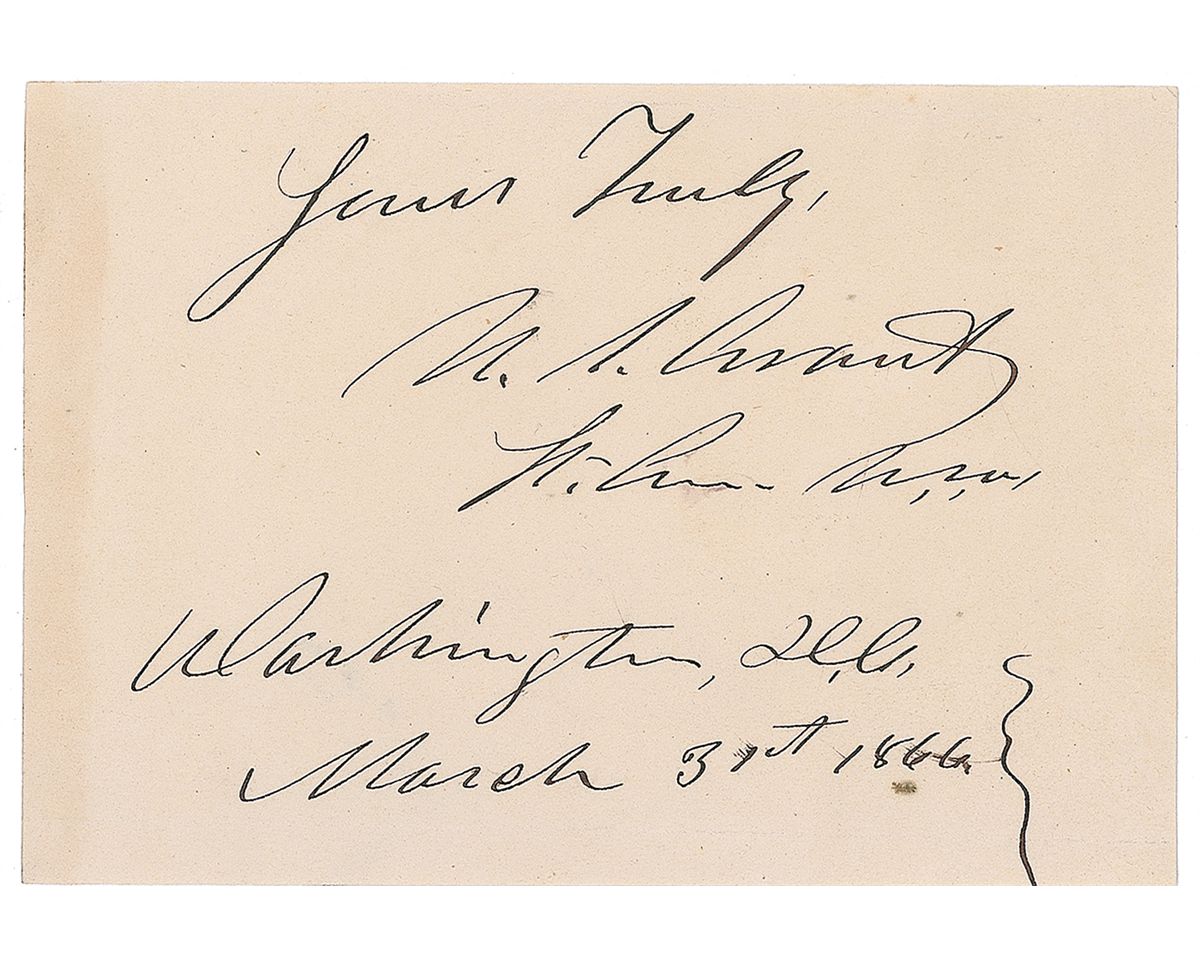 Yours Truly,
U. S. Grant
Lt. Gen. U.S.A.
Washington, D.C.
March 31st 1866.